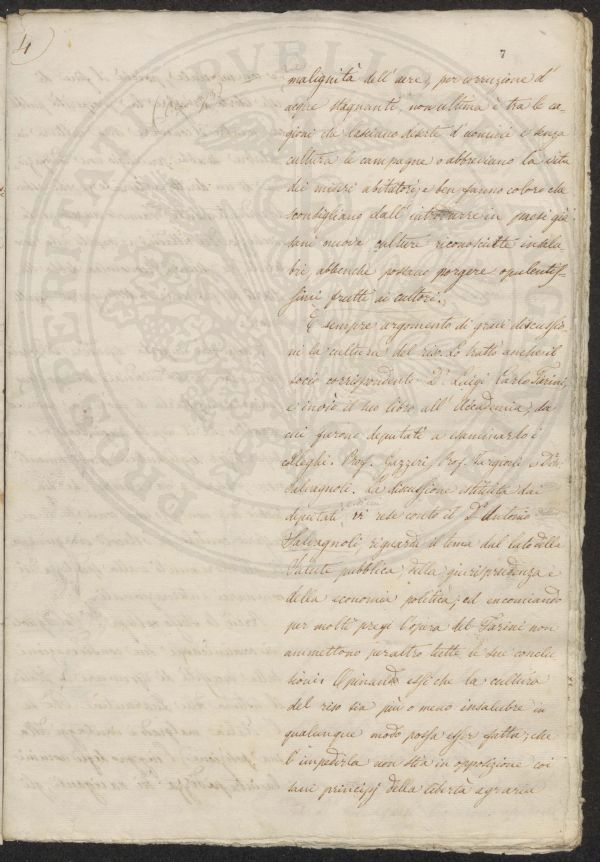 4
7
malignità dell'aere, per corruzione d'
acque stagnanti, non ultima è tra le ca-
gioni che lasciano diserte d'uomini e senza
cultura le campagne o abbreviano la vita
dei miseri abitatori; e ben fanno coloro che
sconsigliano dall'introdurre in paesi già
sani nuove culture riconosciute insalu
bri, abbenchè possano porgere opulentis-
simi frutti ai cultori.
È sempre argomento di gravi discussio
ni la cultura del riso. Lo trattò anche il
socio corrispondente D. Luigi Carlo Farini,
e inviò il suo libro all'Accademia; da
cui furono deputati a esaminarlo i
colleghi. Prof. Gazzeri, Prof. Targioni e Dr.
Salvagnoli. La discussione istituita dai
deputati, vi rese conto il Dr. Antonio
Salvagnoli, riguarda il tema dal lato della
salute pubblica, della giurisprudenza e
della economia politica; ed encomiando
per molti pregi l'opera del Farini non
ammettono peraltro tutte le sue conclu
sioni. Opinando essi che la cultura
del riso sia più o meno insalubre in
qualunque modo possa esser fatta; che
l'impedirla non stia in opposizione coi
sani principj della libertà agraria
PROSPERITÀ REPUBLIC